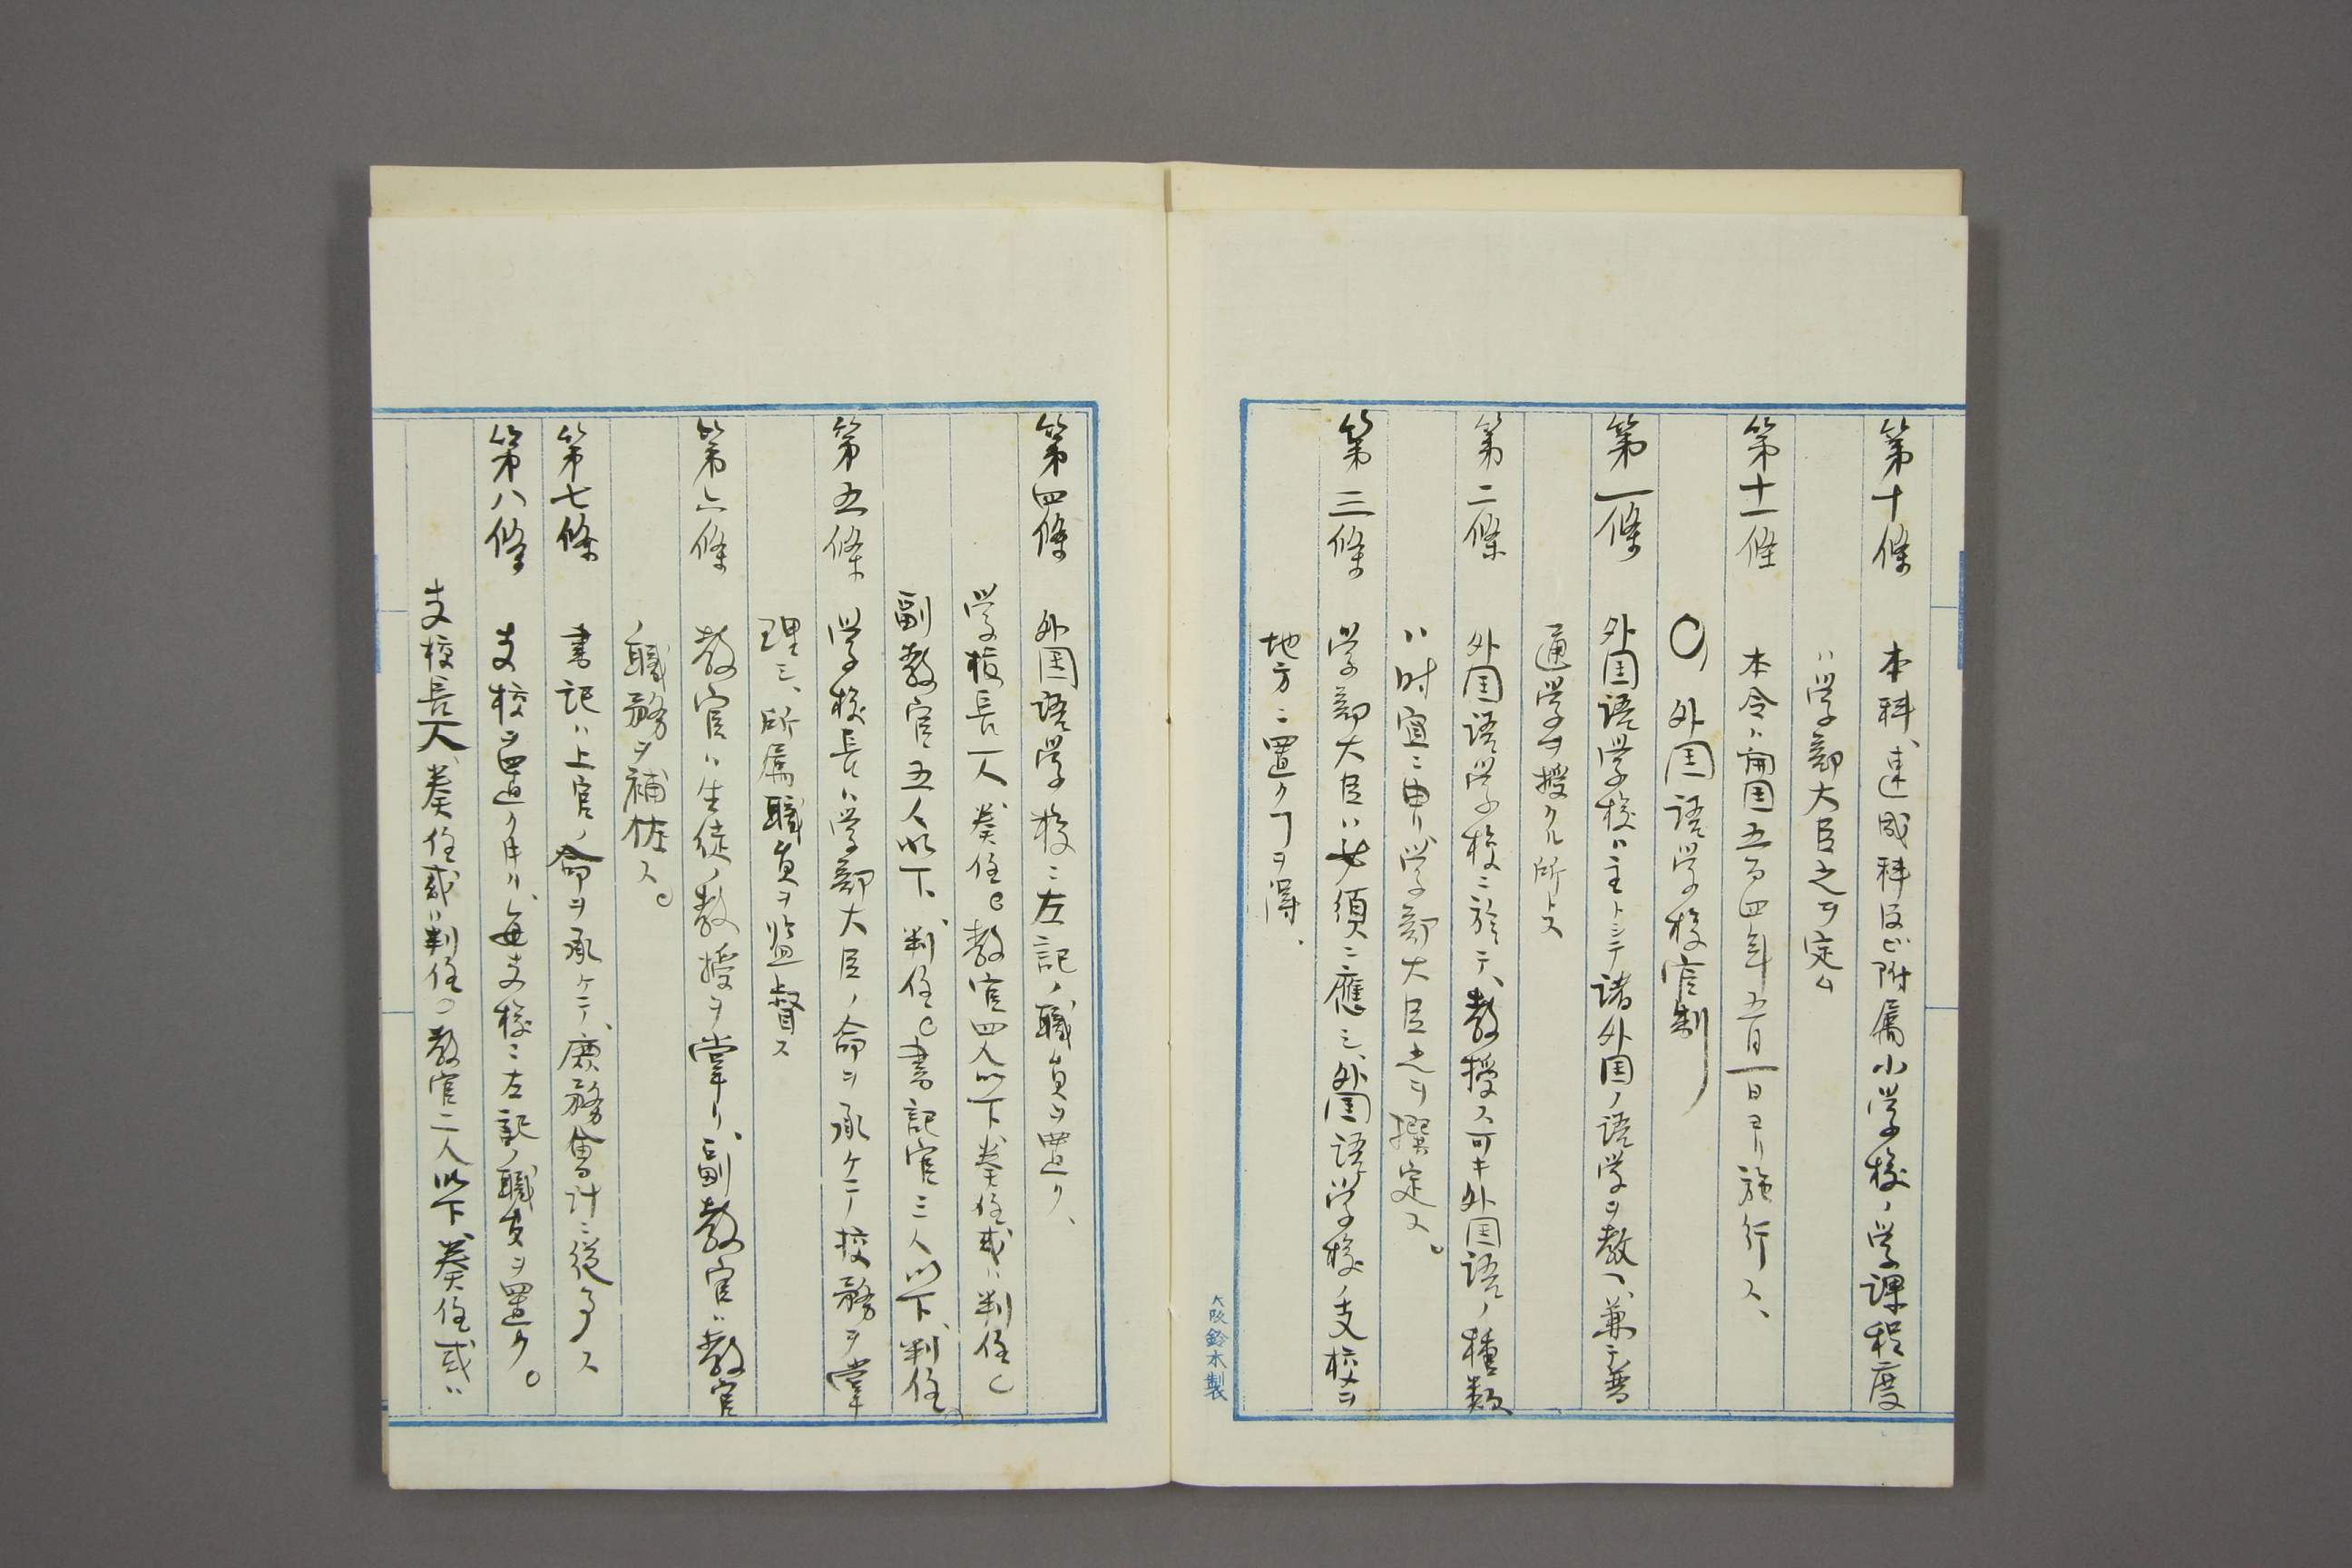 第十條　本科、速成科及ビ附属小学校ノ学課程度
ハ学部大臣之ヲ定ム
第十一條　本令ハ開国五百四年五月一日ヨリ施行ス、
○外国語学校官制
第一條　外国語学校ハ主トシテ諸外国ノ語学ヲ教ヘ、兼テ普
通学ヲ授クル所トス
第二條　外国語学校ニ於テ、教授ス可キ外国語ノ種類
ハ時宜ニ由リ学部大臣之ヲ撰定ス。
第三條　学部大臣ハ必須ニ應シ、外国語学校ノ支校ヲ
地方ニ置クヿヲ得、
大阪鈴木製
第四條　外国語学校ニ左記ノ職員ヲ置ク、
学校長一人奏任。教官四人以下、奏任或ハ判任。
副教官五人以下、判任。書記官三人以下、判任。
第五條　学校長ハ学部大臣ノ命ヲ承ケテ校務ヲ掌
理シ、所属職員ヲ監督ス
第六條　教官ハ生徒ノ教授ヲ掌リ、副教官ハ教官
ノ職務ヲ補佐ス。
第七條　書記ハ上官ノ命ヲ承ケテ、庶務會計ニ從事ス
第八條　支校ヲ置ク月ハ、毎支校ニ左記ノ職員ヲ置ク。
支校長一人、奏任或ハ判任。教官二人以下、奏任或ハ